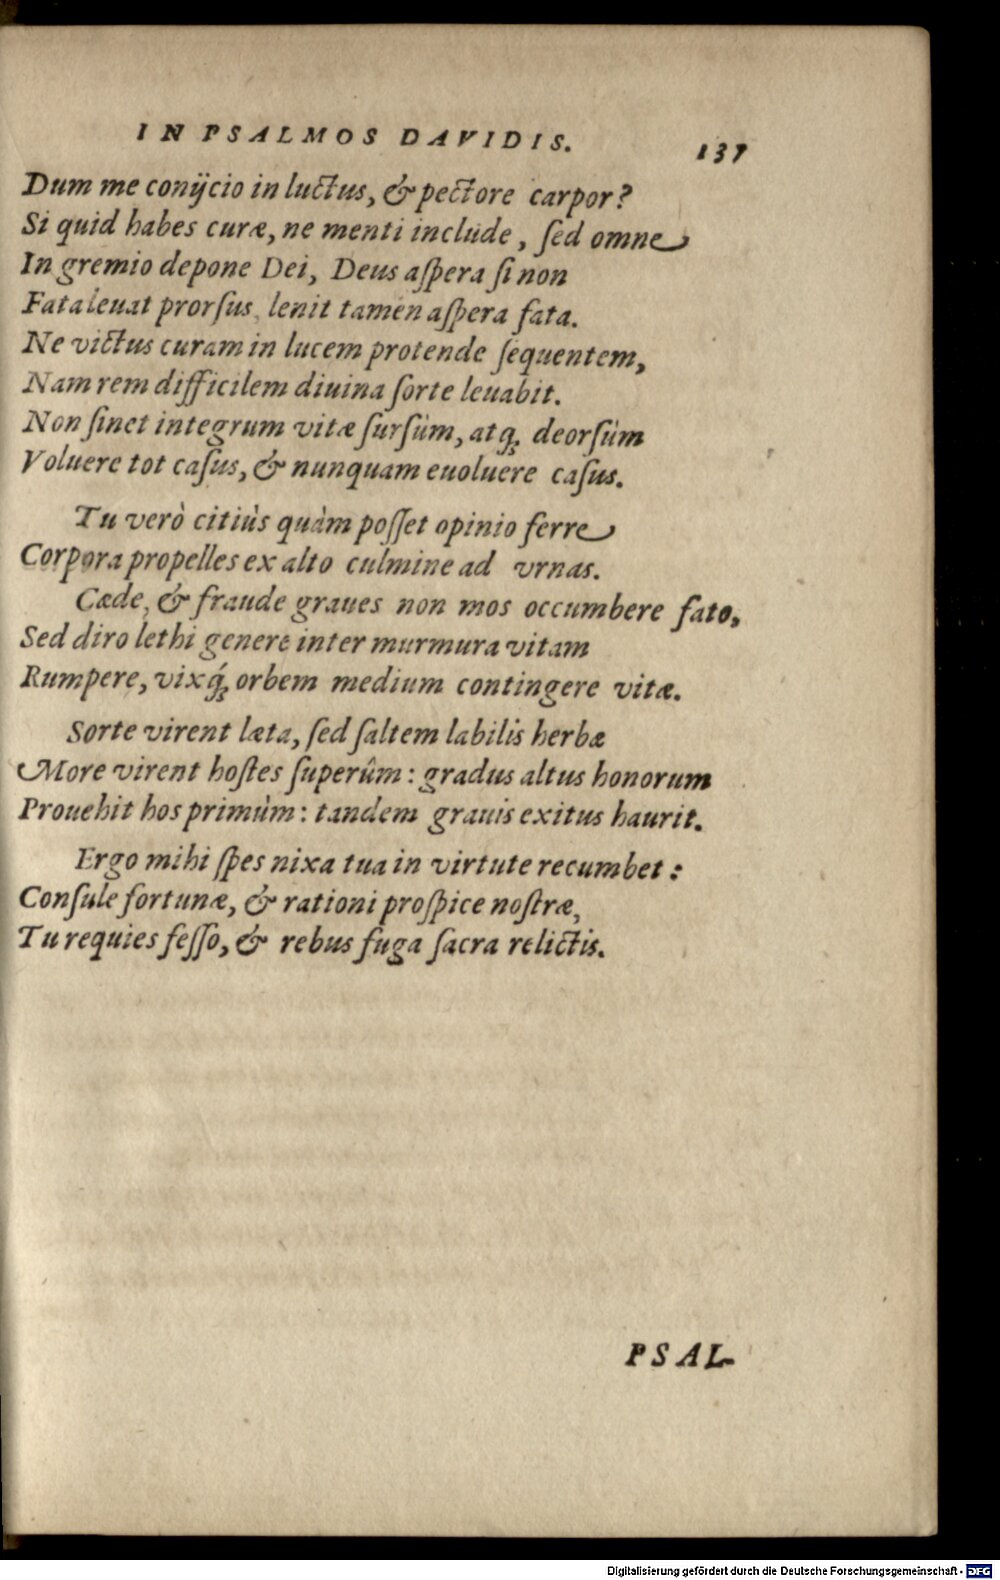 IN PSALMOS DAVIDIS. 137
Dum me conijcio in luctus, & pectore carpor?
Si quid habes curæ, ne menti include, ſed omne
In gremio depone Dei, Deus aſpera ſi non
Fata leuat prorſus, lenit tamen aſpera fata.
Ne victus curam in lucem protende ſequentem,
Nam rem difficilem diuina ſorte leuabit.
Non ſinet integrum vitæ ſurſùm, atq; deorſùm
Voluere tot caſus, & nunquam euoluere caſus.
Tu verò citiùs quàm poſſet opinio ferre
Corpora propelles ex alto culmine ad vrnas.
Cæde, & fraude graues non mos occumbere fato,
Sed diro lethi genere inter murmura vitam
Rumpere, vixq́; orbem medium contingere vitæ.
Sorte virent læta, ſed ſaltem labilis herbæ
More virent hoſtes ſuperûm: gradus altus honorum
Prouehit hos primùm: tandem grauis exitus haurit.
Ergo mihi ſpes nixa tua in virtute recumbet:
Conſule fortunæ, & rationi proſpice noſtræ,
Tu requies feſſo, & rebus fuga ſacra relictis.
PSAL-
Digitalisierung gefördert durch die Deutsche Forschungsgemeinschaft - DFG